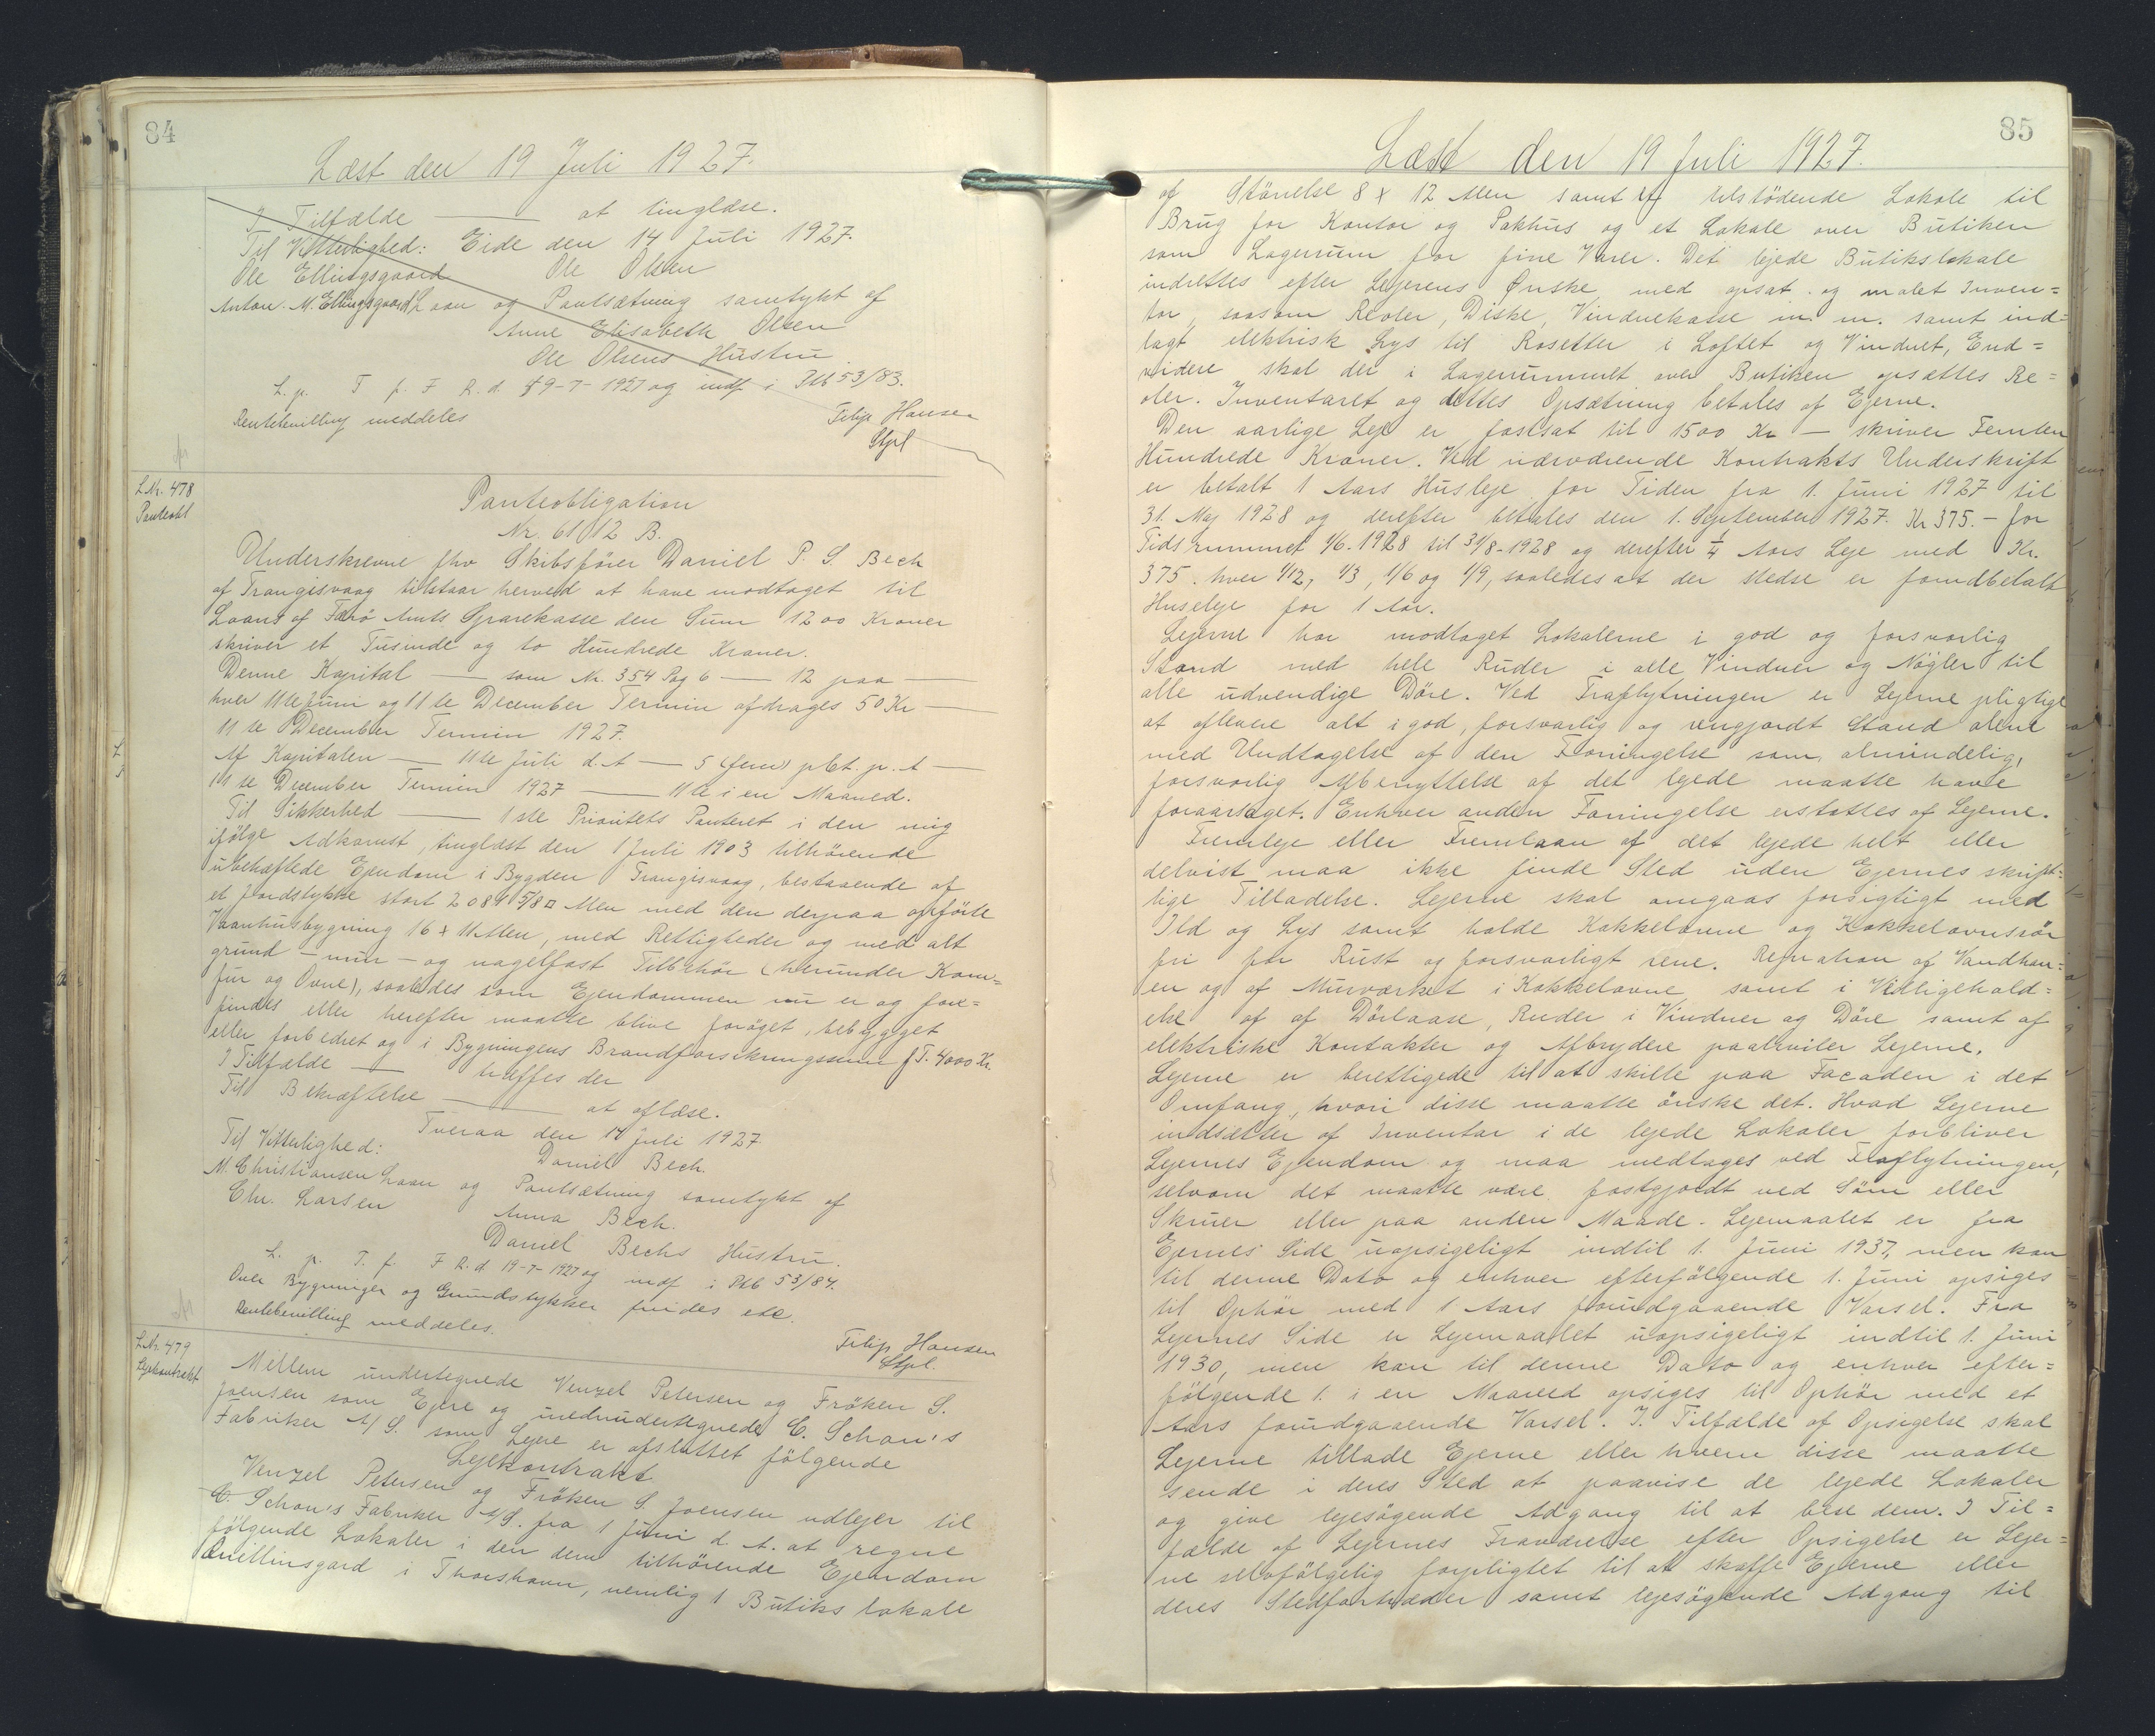 84
Læst den 19 Juli 1927.
I Tilfælde — at tinglæse.
Til Vitterlighed: Eide den 14 Juli 1927.
Ole Ellingsgaard Ole Olsen
Anton. M. Ellingsgaard Laan og Pantsætning samtykt af
Anne Elisabeth Olsen
Ole Olsens Hustru.
L. p. T f. F R. d. 19-7-1927 og indf. i Ptb 53/83.
Rentebevilling meddeles
Filip Hansen
Stpl
L.Nr. 478
Panteobl
Panteobligation
Nr. 61/12 B.
Underskrevne fhv Skibsfører Daniel P. S. Bech
af Trangisvaag tilstaar herved at have modtaget til
Laans af Færø Amts Sparekasse den Sum 1200 Kroner
skriver et Tusinde og to Hundrede Kroner.
Denne Kapital — som Nr. 354 Pag 6 — 12 paa —
hver 11te Juni og 11te December Termin afdrages 50 Kr —
11te December Termin 1927.
Af Kapitalen — 11te Juli d. A — 5 (fem) pCt. p. A —
11te December Termin 1927 — 11te i en Maaned.
Til Sikkerhed — 1ste Prioritets Panteret i den mig
ifølge Adkomst, tinglæst den 1 Juli 1903 tilhørende
ubehæftede Ejendom i Bygden Trangisvaag, bestaaende af
et Jordstykke stort 2089 5/8 □ Alen med den derpaa opførte
Vaanhusbygning 16 x 11 Alen, med Rettigheder og med alt
grund- mur- og nagelfast Tilbehør (herunder Kom-
fur og Ovne), saaledes som Ejendommen nu er og fore=
findes eller herefter maatte blive forøget, bebygget
eller forbedret og i Bygningens Brandforsikringssum f T. 4000 Kr.
I Tilfælde — træffes der
Til Bekræftelse — at aflæse.
Tveraa den 14 Juli 1927.
Til Vitterlighed: Daniel Bech.
M. Christiansen Laan og Pantsætning samtykt af
Chr. Larsen Anna Bech.
Daniel Bechs Hustru.
L. p. T. f. F R. d. 19-7-1927 og indf i Ptb 53/84.
Over Bygninger og Grundstykker findes etc.
Rentebevilling meddeles.
Filip Hansen
Stpl.
L.Nr. 479
Lejekontrakt
Mellem undertegnede Venzel Petersen og Frøken S.
Joensen som Ejere og medundertegnede C. Schou's
Fabriker A/S. som Lejere er afsluttet følgende
Lejekontrakt
Venzel Petersen og Frøken S. Joensen udlejer til
C. Schou's Fabriker A/S. fra 1 Juni d. A. at regne
følgende Lokaler i den dem tilhørende Ejendom
Quillinsgard i Thorshavn, nemlig 1 Butiks lokale
85
Læst den 19 Juli 1927.
af Størrelse 8 x 12 Alen samt et tilstødende Lokale til
Brug for Kontor og Pakhus og et Lokale over Butiken
som Lagerrum for fine Varer. Det lejede Butikslokale
indrettes efter Lejerens Ønske med opsat og malet Inven=
tar, saasom Reoler, Diske, Vindueskasse m. m. samt ind=
lagt elektrisk Lys til Rosetter i Loftet og Vinduet, End=
videre skal der i Lagerrummet over Butiken opsættes Re=
oler. Inventaret og dettes Opsætning betales af Ejerne.
Den aarlige Leje er fastsat til 1500 Kr — skriver Femten
Hundrede Kroner. Ved nærværende Kontrakts Underskrift
er betalt 1 Aars Husleje for Tiden fra 1. Juni 1927 til
31. Maj 1928 og derefter betales den 1. September 1927. Kr 375.- for
Tidsrummet 1/6-1928 til 31/8-1928 og derefter 1/4 Aars Leje med Kr.
375. hver 1/12, 1/3, 1/6 og 1/9, saaledes at der stedse er forudbetalt
Husleje for 1 Aar.
Lejerne har modtaget Lokalerne i god og forsvarlig
Stand med hele Ruder i alle Vinduer og Nøgler til
alle udvendige Døre. Ved Fraflytningen er Lejerne pligtige
at aflevere alt i god, forsvarlig og rengjordt Stand alene
med Undtagelse af den Forringelse som almindelig,
forsvarlig Afbenyttelse af det lejede maatte have
foraarsaget. Enhver anden Forringelse erstattes af Lejerne.
Fremleje eller Fremlaan af det lejede helt eller
delvist maa ikke finde Sted uden Ejernes skrift=
lige Tilladelse. Lejerne skal omgaas forsigtigt med
Ild og Lys samt holde Kakkelovne og Kakkelovnsrør
fri for Rust og forsvarligt rene. Repration af Vandhan=
en og af Murværket i Kakkelovne samt i Vedligehold=
else af af Dørlaase, Ruder i Vinduer og Døre samt af
elektriske Kontakter og Afbrydere paahviler Lejerne.
Lejerne er berettigede til at skilte paa Facaden i det
Omfang, hvori disse maatte ønske det. Hvad Lejerne
indsætter af Inventar i de lejede Lokaler forbliver
Lejernes Ejendom og maa medtages ved Fraflytningen,
selvom det maatte være fastgjordt ved Søm eller
Skruer eller paa anden Maade. Lejemaalet er fra
Ejernes Side uopsigeligt indtil 1. Juni 1937, men kan
til denne Dato og enhver efterfølgende 1. Juni opsiges
til Ophør med 1 Aars forudgaaende Varsel. Fra
Lejernes Side er Lejemaalet uopsigeligt indtil 1. Juni
1930, men kan til denne Dato og enhver efter=
følgende 1. i en Maaned opsiges til Ophør med et
Aars forudgaaende Varsel. I Tilfælde af Opsigelse skal
Lejerne tillade Ejerne eller hvem disse maatte
sende i deres Sted at paavise de lejede Lokaler
og give lejesøgende Adgang til at bese dem. I Til=
fælde af Lejernes Fraværelse efter Opsigelse er Lejer=
ne selvfølgelig forpligtet til at skaffe Ejerne eller
deres Stedfortræder samt lejesøgende Adgang til